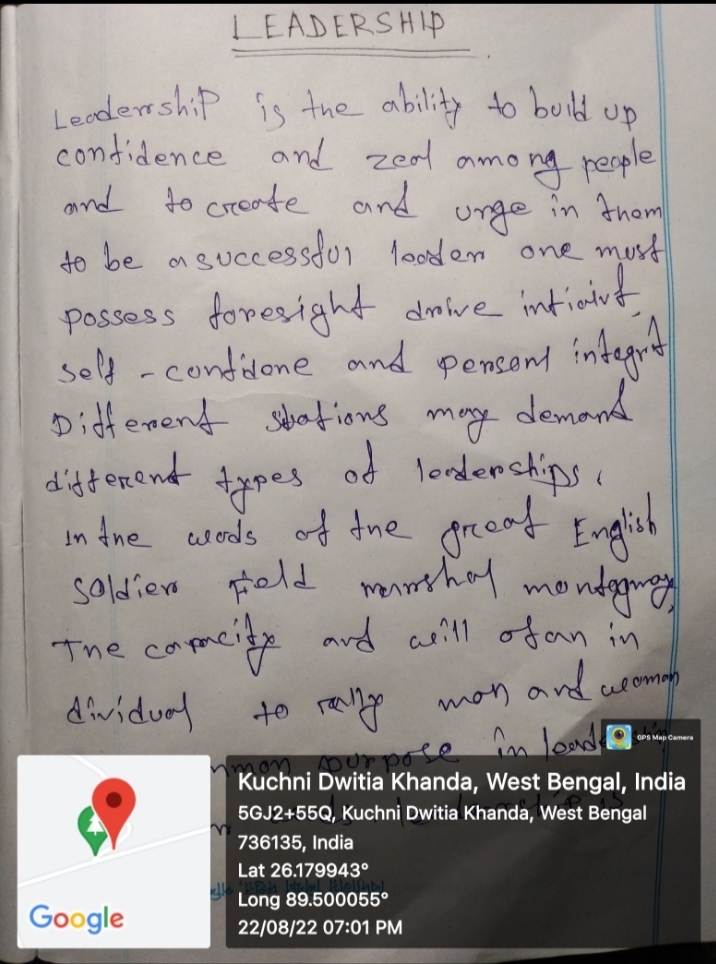 LEADERSHIP
LeadershiP is the ability to build up
confidence and zeal among people
and to create and urge in them
to be a successful leader one must
possess foresight drive intiaivt
self - confidone and persont integrit
Different sitations may demand
different types of leaderships.
In the words of the great English
Soldier Field marshal montegmay,
The capacity and will of an in
dividual to rally man and woman
mmon purpose in leadership
GPS Map Camera
Kuchni Dwitia Khanda, West Bengal, India
5GJ2+55Q, Kuchni Dwitia Khanda, West Bengal
736135, India
Lat 26.179943°
Long 89.500055°
22/08/22 07:01 PM
Google